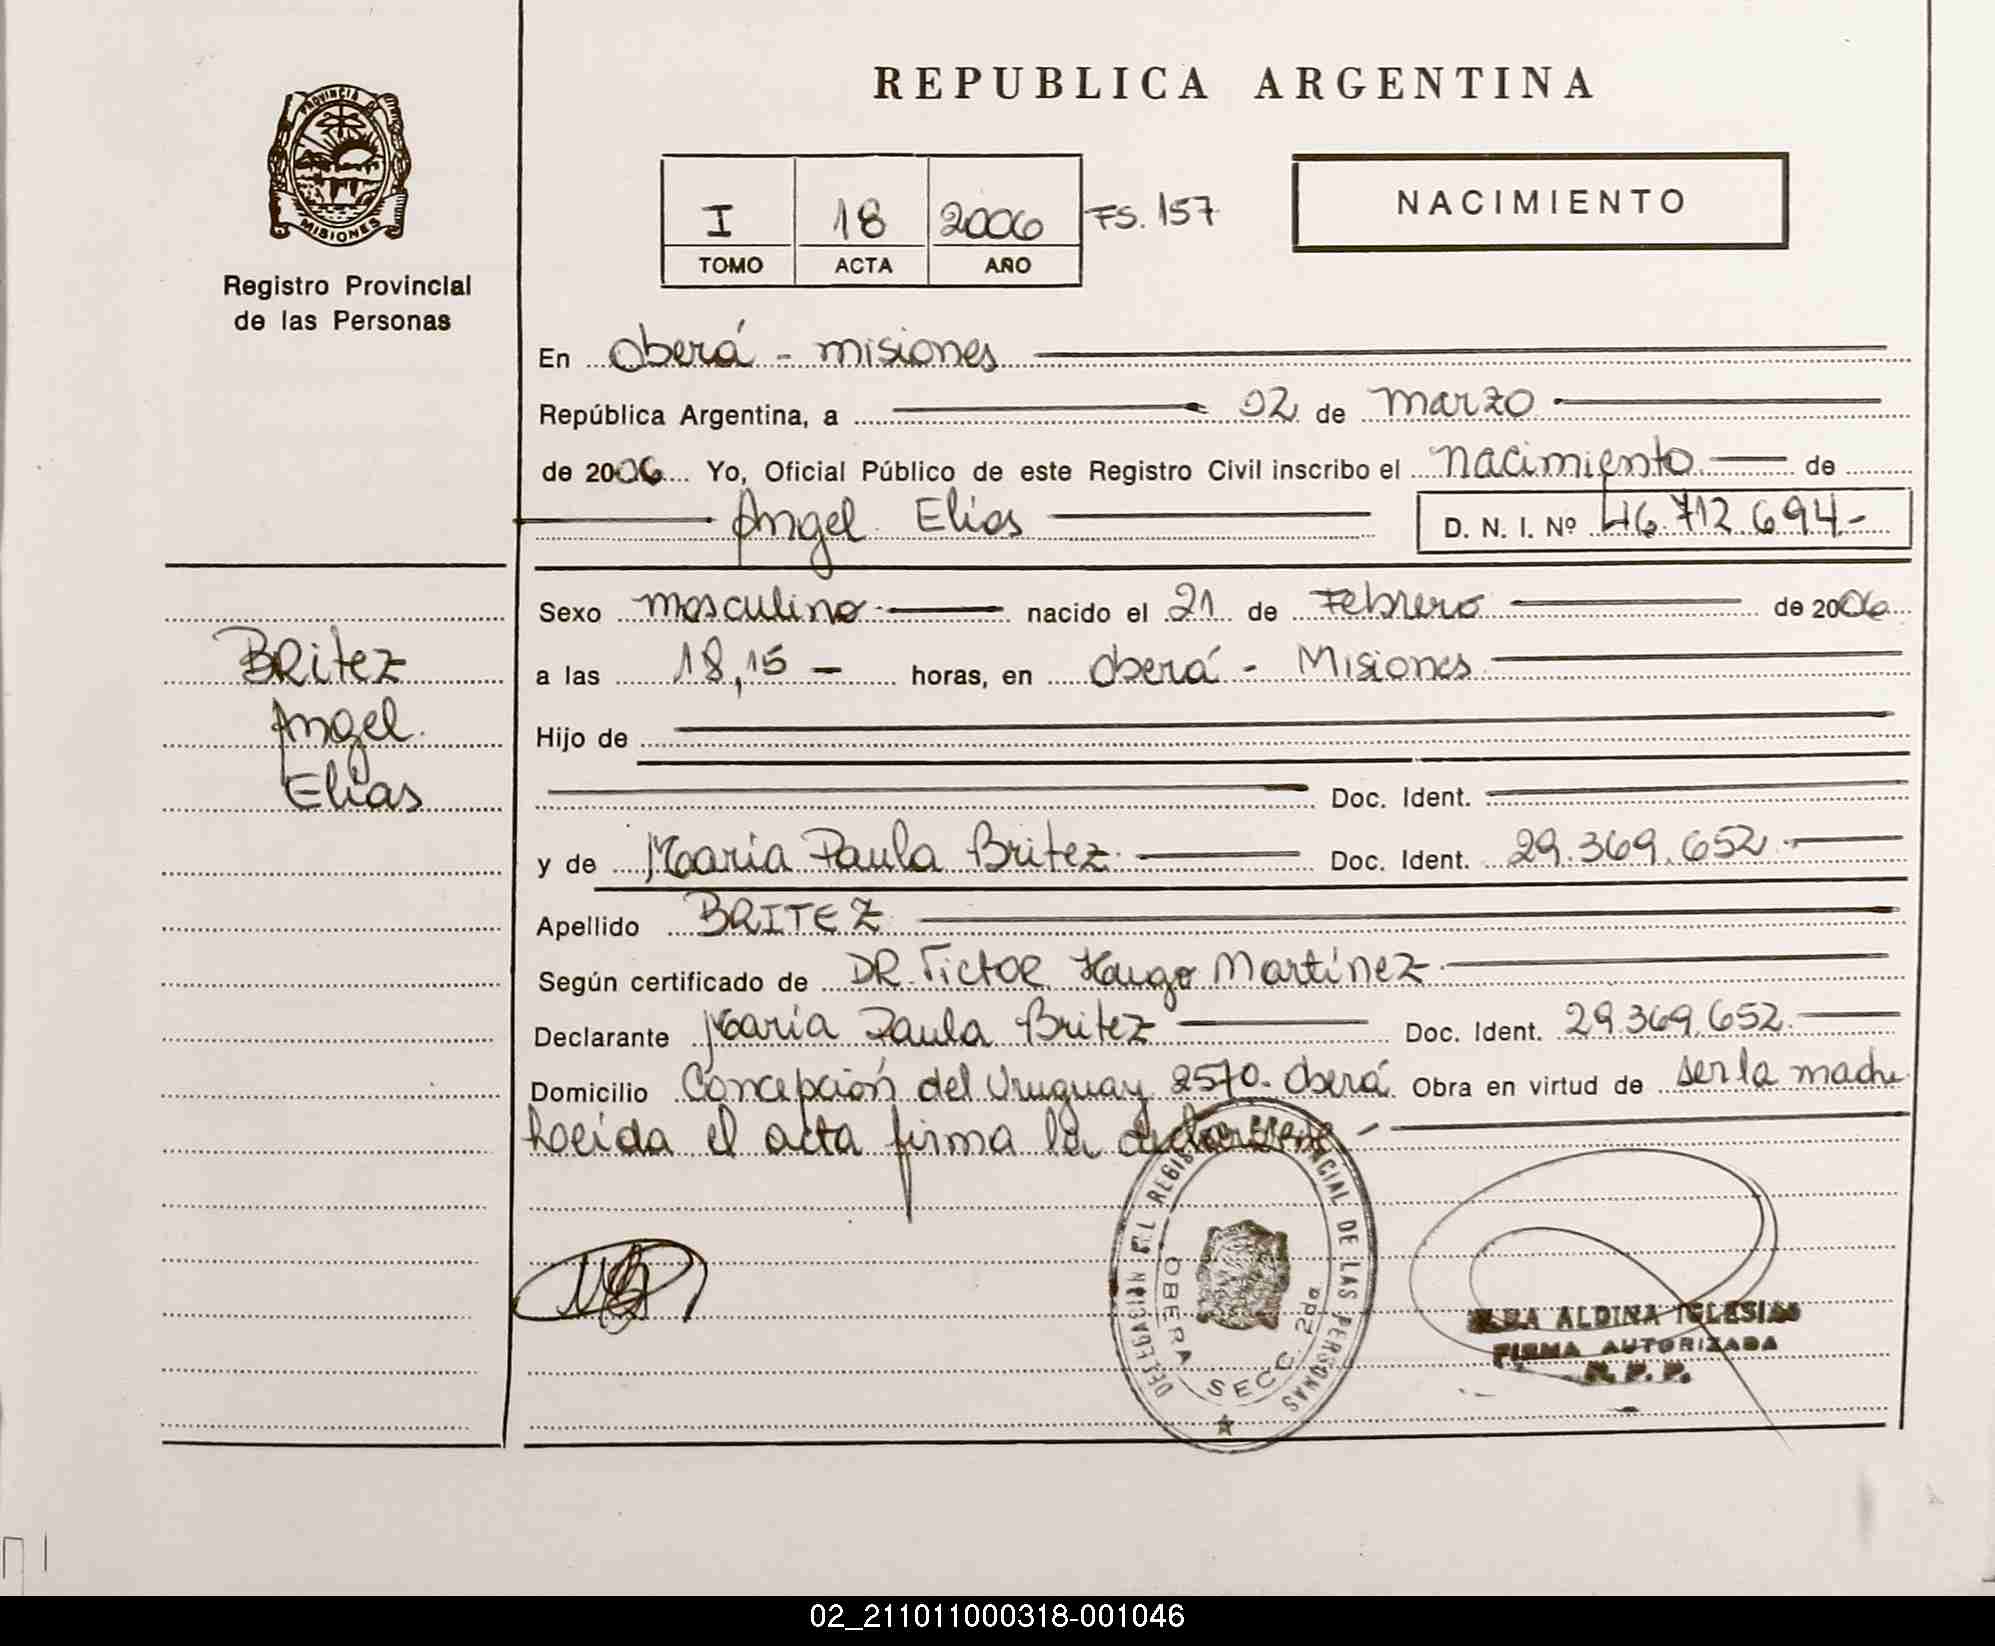 REPUBLICA ARGENTINA
PROVINCIA DE
MISIONES
Registro Provincial
de las Personas
I 18 2006 FS. 157
TOMO ACTA AÑO
NACIMIENTO
En Oberá - misiones
República Argentina, a 02 de marzo
de 2006 Yo, Oficial Público de este Registro Civil inscribo el nacimiento de
Angel Elias D. N. I. Nº 46.712.694-
Sexo masculino nacido el 21 de Febrero de 2006
a las 18,15 horas, en Oberá - Misiones
Hijo de
Doc. Ident.
y de Maria Paula Britez Doc. Ident. 29.369.652
Apellido BRITEZ
Según certificado de DR. Victor Hugo Martínez
Declarante Maria Paula Britez Doc. Ident. 29.369.652
Domicilio Concepción del Uruguay 2570. Oberá Obra en virtud de ser la madre
el acta firma la declarante
BRitez
Angel
Elias
DELEGACION DEL REGISTRO PROVINCIAL DE LAS PERSONAS
OBERA SECC. 2da
ALDINA IGLESIAS
FIRMA AUTORIZADA
R. P. P.
02_211011000318-001046